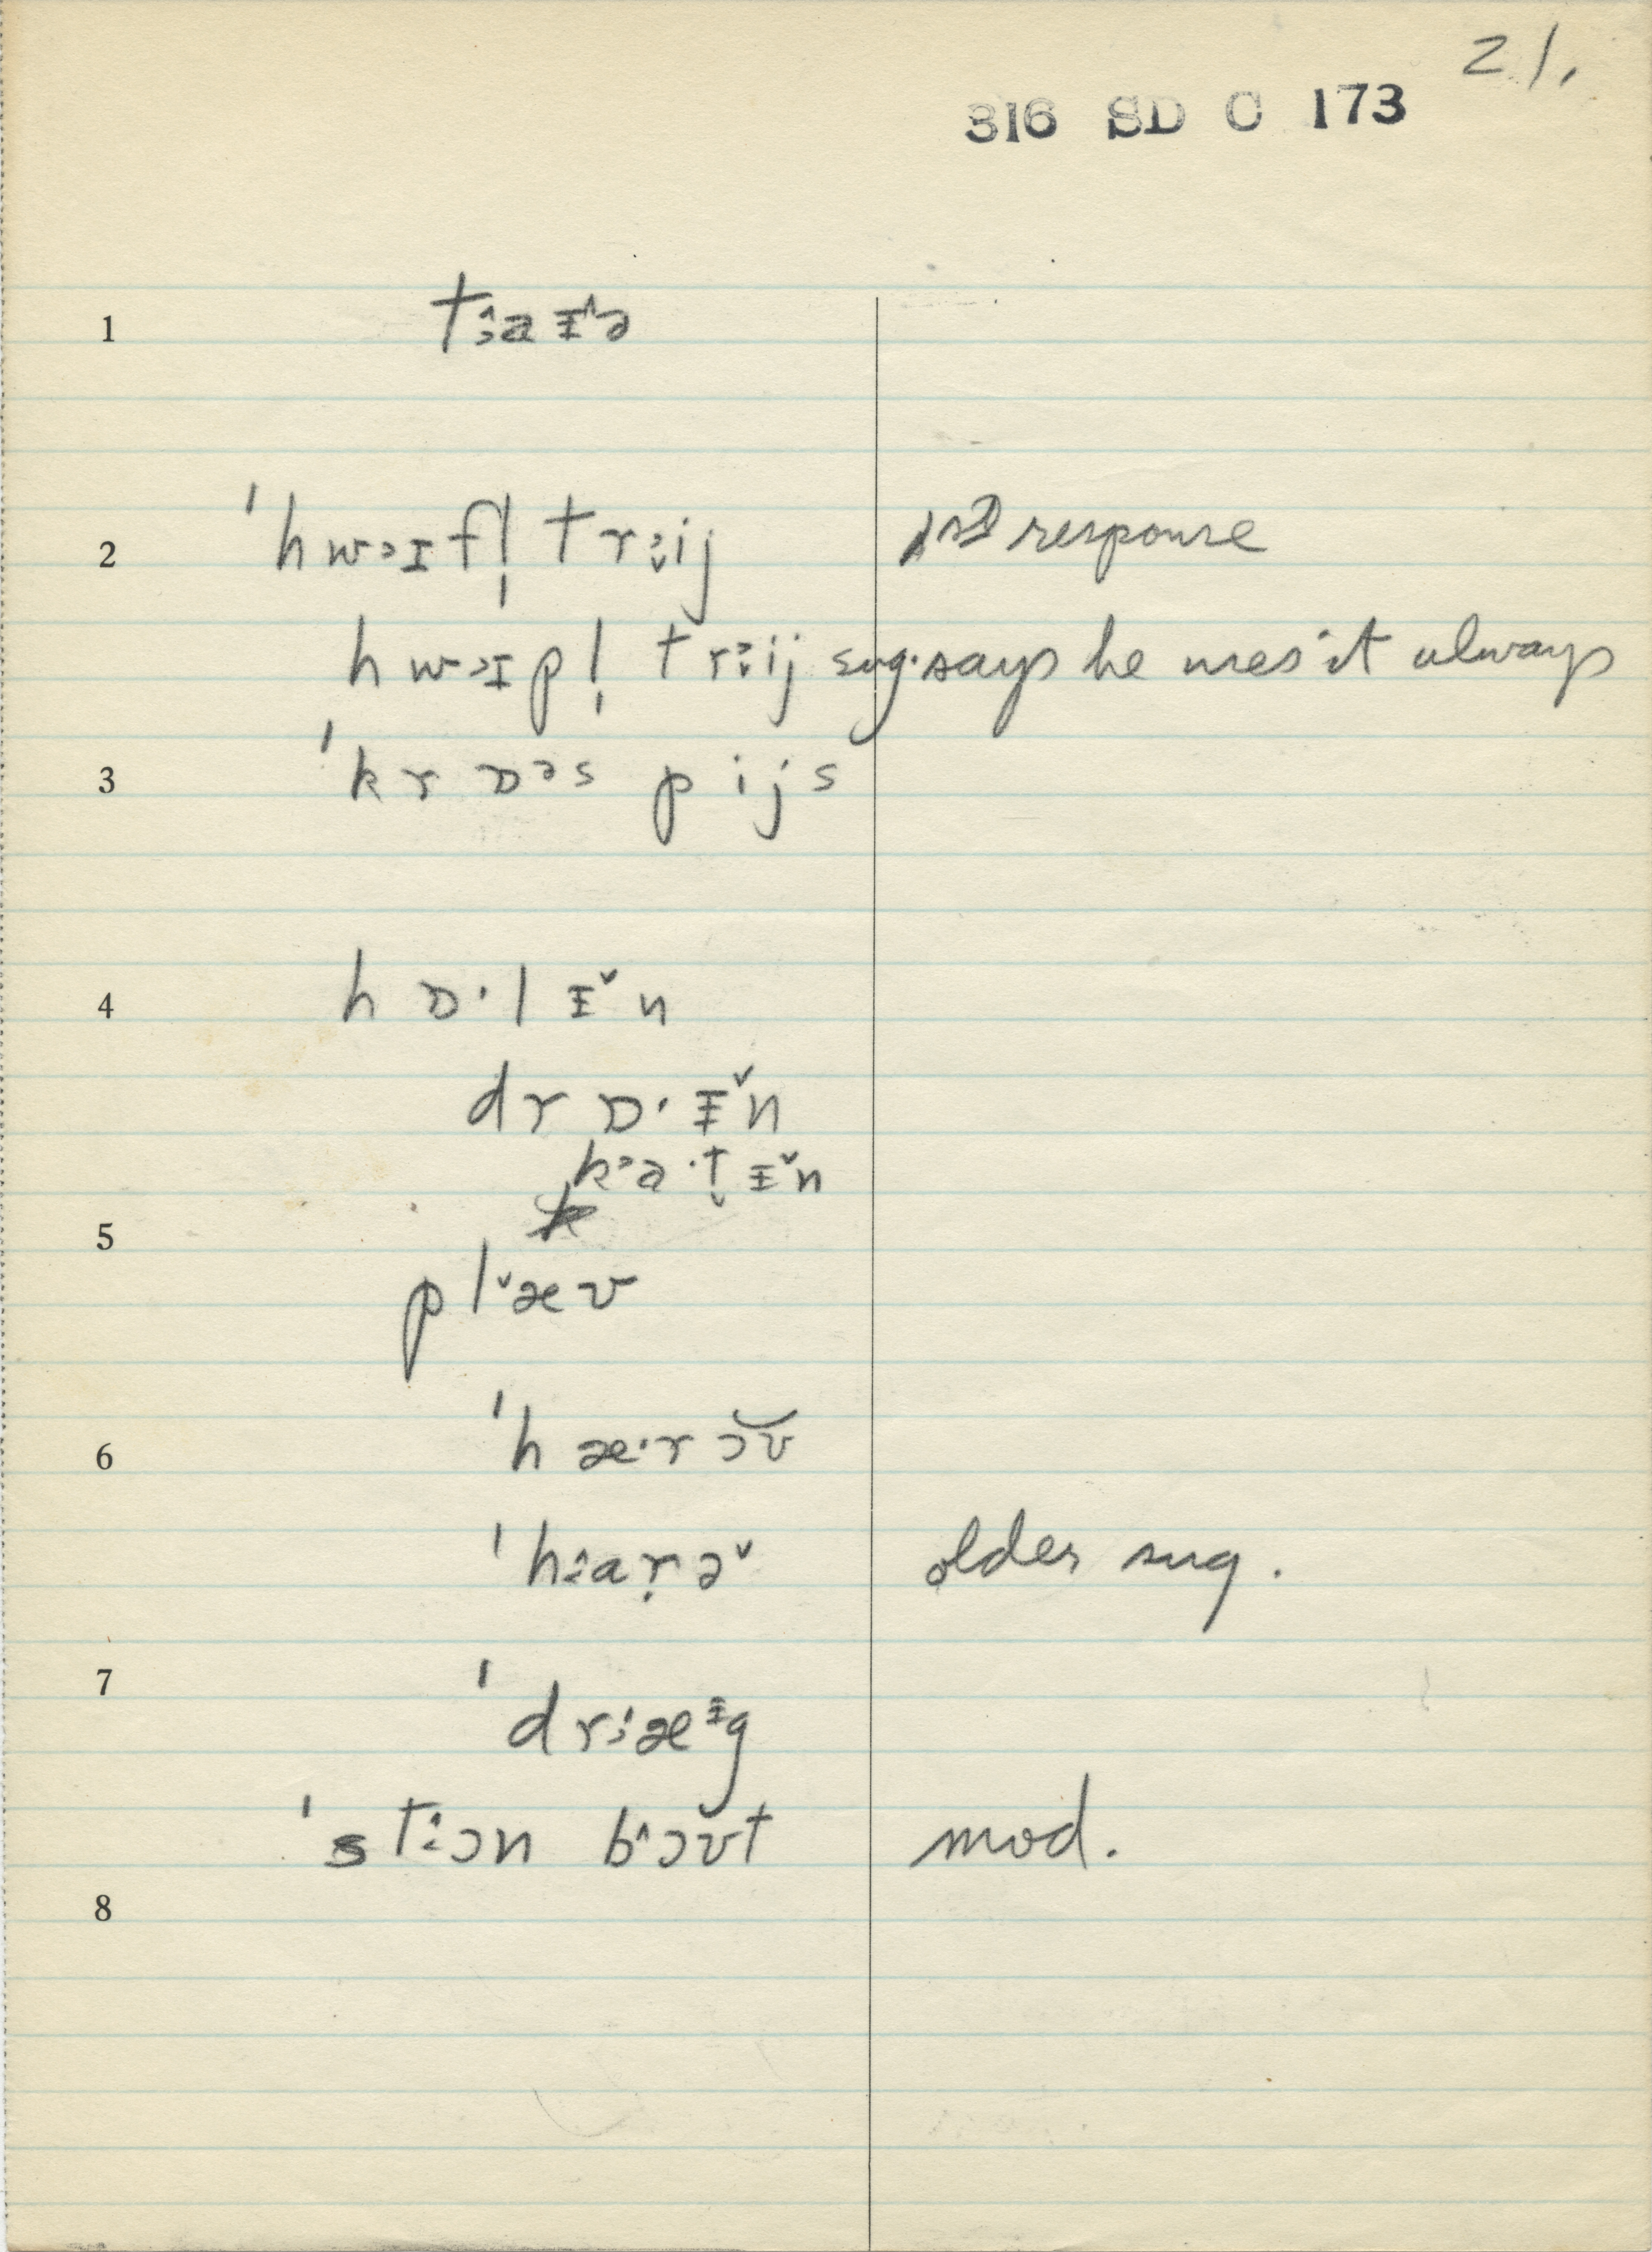 21.
316 SD C 173
1 tɜ˄aᵻ˄ə
2 ˈhwɔɪfl̩ trɜ˅ij 1st response
hwɔɪpl̩ trɜ˅ij sug. says he uses it always
3 ˈkrɒəs pijs
4 hɒ·lᵻ˅n
drɒ·ᵻ˅n
k˃a·t̬ᵻ˅n
5
pl˅æʊ
6 ˈhæ·rɔ̆ʊ
ˈh˄aṛə˅ older sug.
7
ˈdr˄æᵻg
ˈst˄ɔn b˄ɔʊ̆t mod.
8